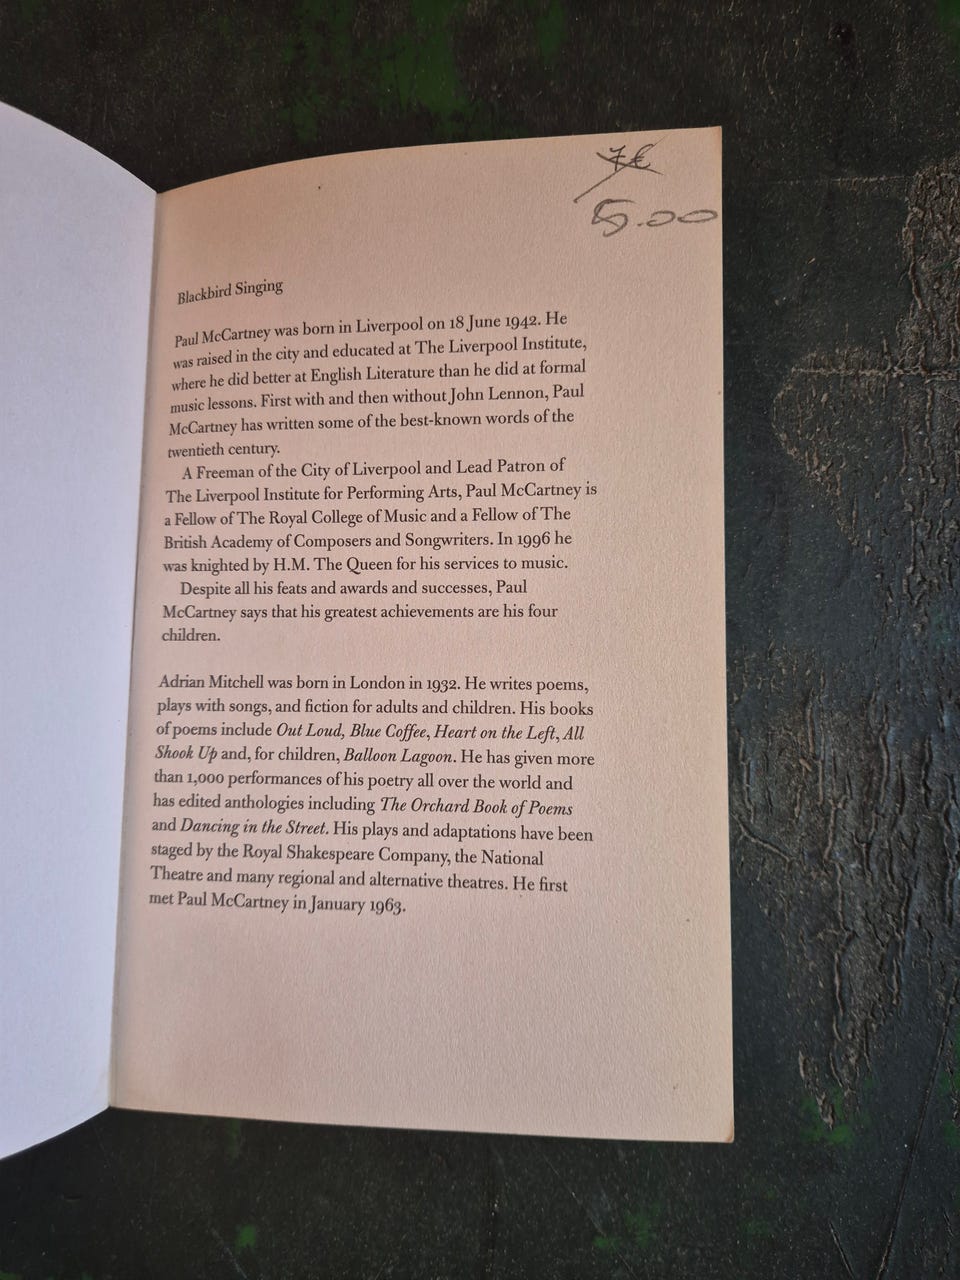 7€
5.00
Blackbird Singing
Paul McCartney was born in Liverpool on 18 June 1942. He
was raised in the city and educated at The Liverpool Institute,
where he did better at English Literature than he did at formal
music lessons. First with and then without John Lennon, Paul
McCartney has written some of the best-known words of the
twentieth century.
A Freeman of the City of Liverpool and Lead Patron of
The Liverpool Institute for Performing Arts, Paul McCartney is
a Fellow of The Royal College of Music and a Fellow of The
British Academy of Composers and Songwriters. In 1996 he
was knighted by H.M. The Queen for his services to music.
Despite all his feats and awards and successes, Paul
McCartney says that his greatest achievements are his four
children.
Adrian Mitchell was born in London in 1932. He writes poems,
plays with songs, and fiction for adults and children. His books
of poems include Out Loud, Blue Coffee, Heart on the Left, All
Shook Up and, for children, Balloon Lagoon. He has given more
than 1,000 performances of his poetry all over the world and
has edited anthologies including The Orchard Book of Poems
and Dancing in the Street. His plays and adaptations have been
staged by the Royal Shakespeare Company, the National
Theatre and many regional and alternative theatres. He first
met Paul McCartney in January 1963.